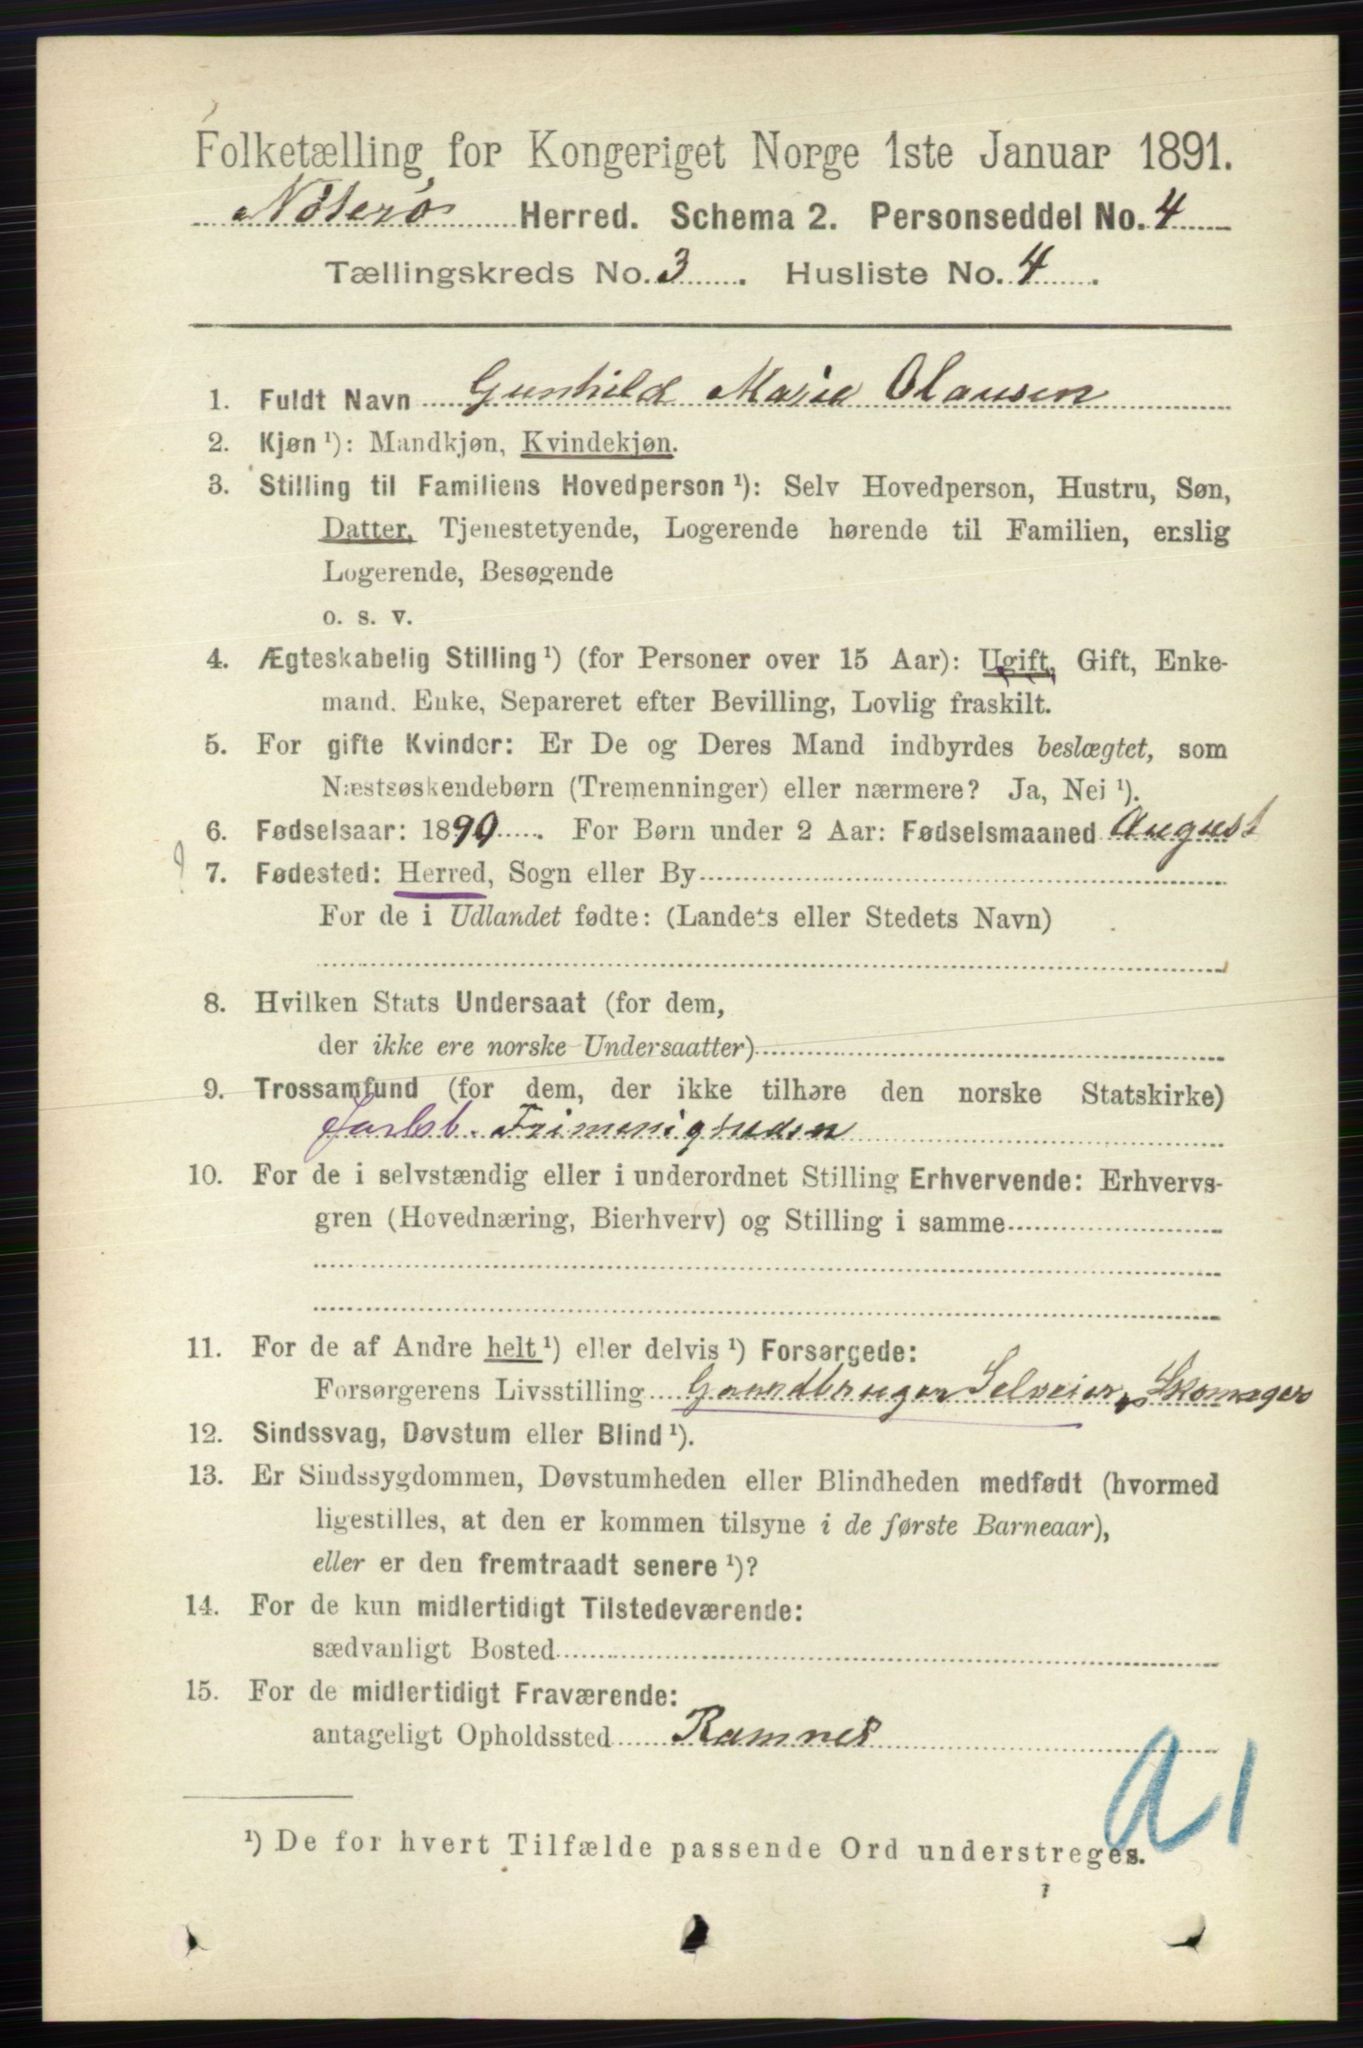 Folketælling for Kongeriget Norge 1ste Januar 1891.
Nøterø Herred. Schema 2. Personseddel No. 4
Tællingskreds No. 3. Husliste No. 4.
1. Fuldt Navn Gunhild Marie Olausen
2. Kjøn ¹): Mandkjøn, Kvindekjøn.
3. Stilling til Familiens Hovedperson ¹): Selv Hovedperson, Hustru, Søn,
Datter, Tjenestetyende, Logerende hørende til Familien, enslig
Logerende, Besøgende
o. s. v.
4. Ægteskabelig Stilling ¹) (for Personer over 15 Aar): Ugift, Gift, Enke-
mand, Enke, Separeret efter Bevilling, Lovlig fraskilt.
5. For gifte Kvinder: Er De og Deres Mand indbyrdes beslægtet, som
Næstsøskendebørn (Tremenninger) eller nærmere? Ja, Nei ¹).
6. Fødselsaar: 1890. For Børn under 2 Aar: Fødselsmaaned August
7. Fødested: Herred, Sogn eller By
For de i Udlandet fødte: (Landets eller Stedets Navn)
8. Hvilken Stats Undersaat (for dem,
der ikke ere norske Undersaatter)
9. Trossamfund (for dem, der ikke tilhøre den norske Statskirke)
Jarlsb. Frimenigheden
10. For de i selvstændig eller i underordnet Stilling Erhvervende: Erhvervs-
gren (Hovednæring, Bierhverv) og Stilling i samme
11. For de af Andre helt ¹) eller delvis ¹) Forsørgede:
Forsørgerens Livsstilling Gaardbruger Selveier, Skomager
12. Sindssvag, Døvstum eller Blind ¹).
13. Er Sindssygdommen, Døvstumheden eller Blindheden medfødt (hvormed
ligestilles, at den er kommen tilsyne i de første Barneaar),
eller er den fremtraadt senere ¹)?
14. For de kun midlertidigt Tilstedeværende:
sædvanligt Bosted
15. For de midlertidigt Fraværende:
antageligt Opholdssted Ramnes
¹) De for hvert Tilfælde passende Ord understreges.
a1